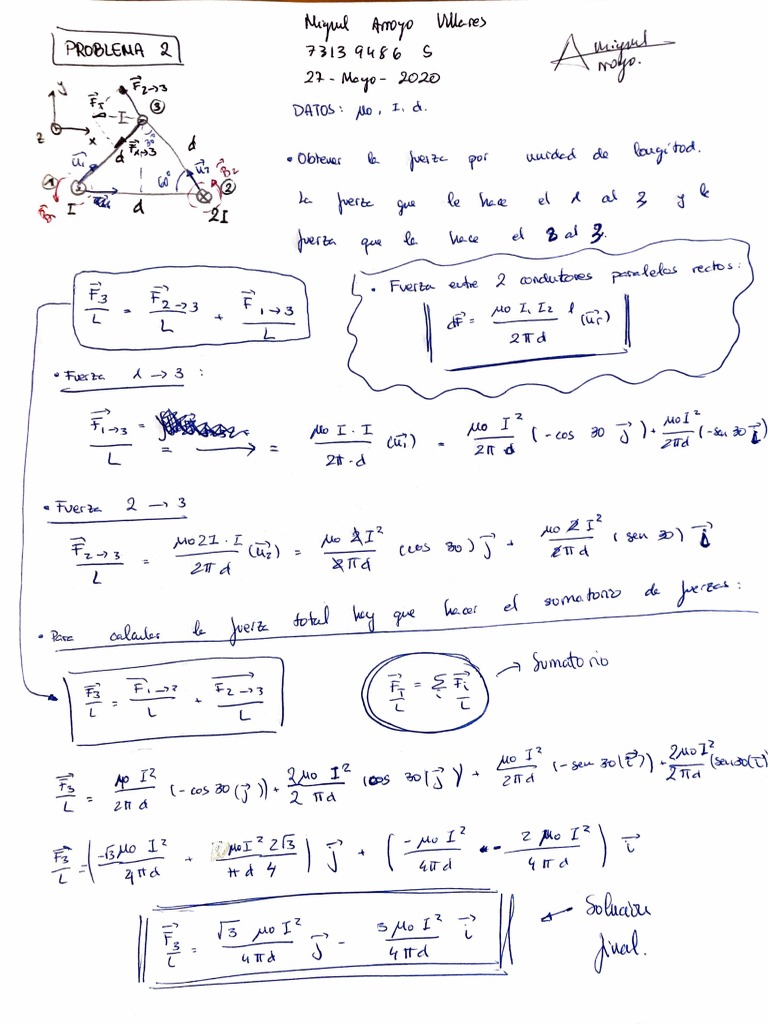 Miguel Arroyo Villares
PROBLEMA 2
73139486 S
27-Mayo-2020
Miguel Arroyo.
DATOS: μo, I, d.
y x z
F⃗T I F⃗2→3 ③
F⃗1→3 30° d d
u⃗1 u⃗2 B⃗2
① B⃗1 I d 60° ② 2I
• Obtener la fuerza por unidad de longitud.
La fuerza que le hace el 1 al 3 y la
fuerza que le hace el 2 al 3.
F⃗3/L = F⃗2→3/L + F⃗1→3/L
• Fuerza entre 2 conductores paralelos rectos:
dF⃗ = μo I1 I2 l / 2πd (u⃗r)
• Fuerza 1→3:
F⃗1→3/L = → = μo I·I / 2π·d (u⃗1) = μo I² / 2πd (-cos 30 j⃗) + μo I² / 2πd (-sen 30 i⃗)
• Fuerza 2→3
F⃗2→3/L = μo 2I·I / 2πd (u⃗2) = μo 2I² / 2πd (cos 30) j⃗ + μo 2I² / 2πd (sen 30) i⃗
• Para calcular la fuerza total hay que hacer el sumatorio de fuerzas:
F⃗3/L = F⃗1→3/L + F⃗2→3/L
F⃗T/L = Σi F⃗i/L → Sumatorio
F⃗3/L = μo I² / 2πd (-cos 30 (j⃗)) + 2μo I² / 2πd (cos 30 (j⃗)) + μo I² / 2πd (-sen 30 (i⃗)) + 2μo I² / 2πd (sen 30 (i⃗)
F⃗3/L = (-√3 μo I² / 4πd + μo I² 2√3 / πd 4) j⃗ + (-μo I² / 4πd - 2 μo I² / 4πd) i⃗
F⃗3/L = √3 μo I² / 4πd j⃗ - 3 μo I² / 4πd i⃗ ← Solucion
final.